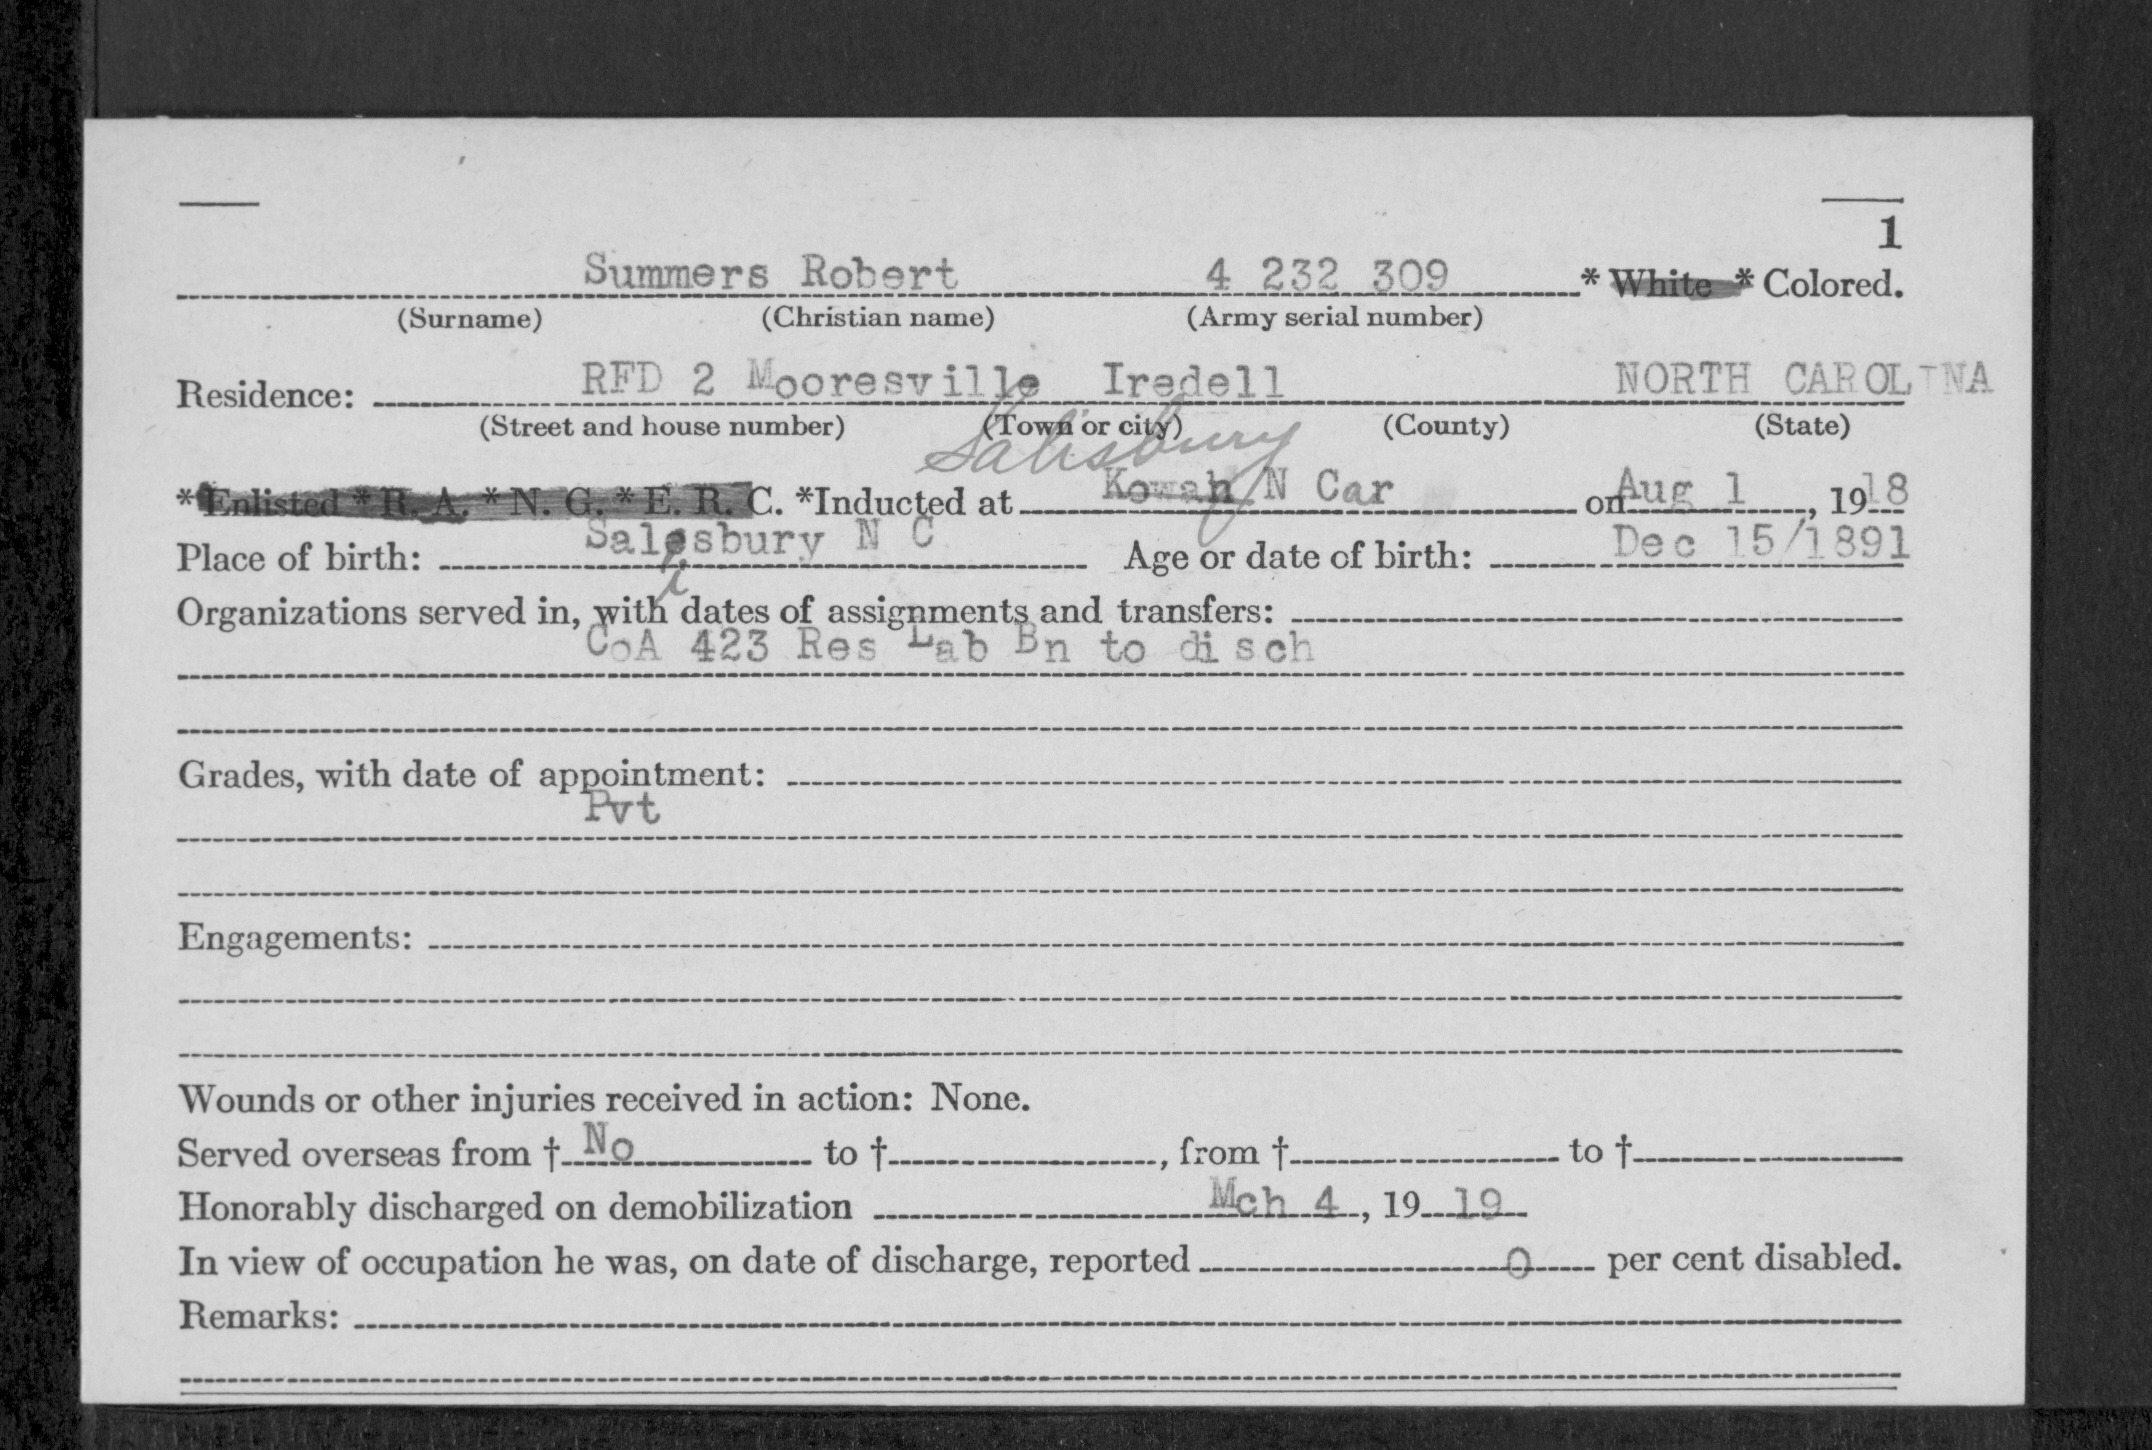 1
Summers Robert 4 232 309 * White * Colored.
(Surname) (Christian name) (Army serial number)
RFD 2 Mooresville Iredell NORTH CAROLINA
Residence:
(Street and house number) (Town or city) (County) (State)
Salisbury
*Enlisted * R. A. * N. G. * E. R. C. *Inducted at Kowah N Car on Aug 1, 1918
Place of birth: Salesbury N C Age or date of birth: Dec 15/1891
i
Organizations served in, with dates of assignments and transfers:
CoA 423 Res Lab Bn to disch
Grades, with date of appointment:
Pvt
Engagements:
Wounds or other injuries received in action: None.
Served overseas from † No to †, from † to †
Honorably discharged on demobilization Mch 4, 19 19
In view of occupation he was, on date of discharge, reported 0 per cent disabled.
Remarks: